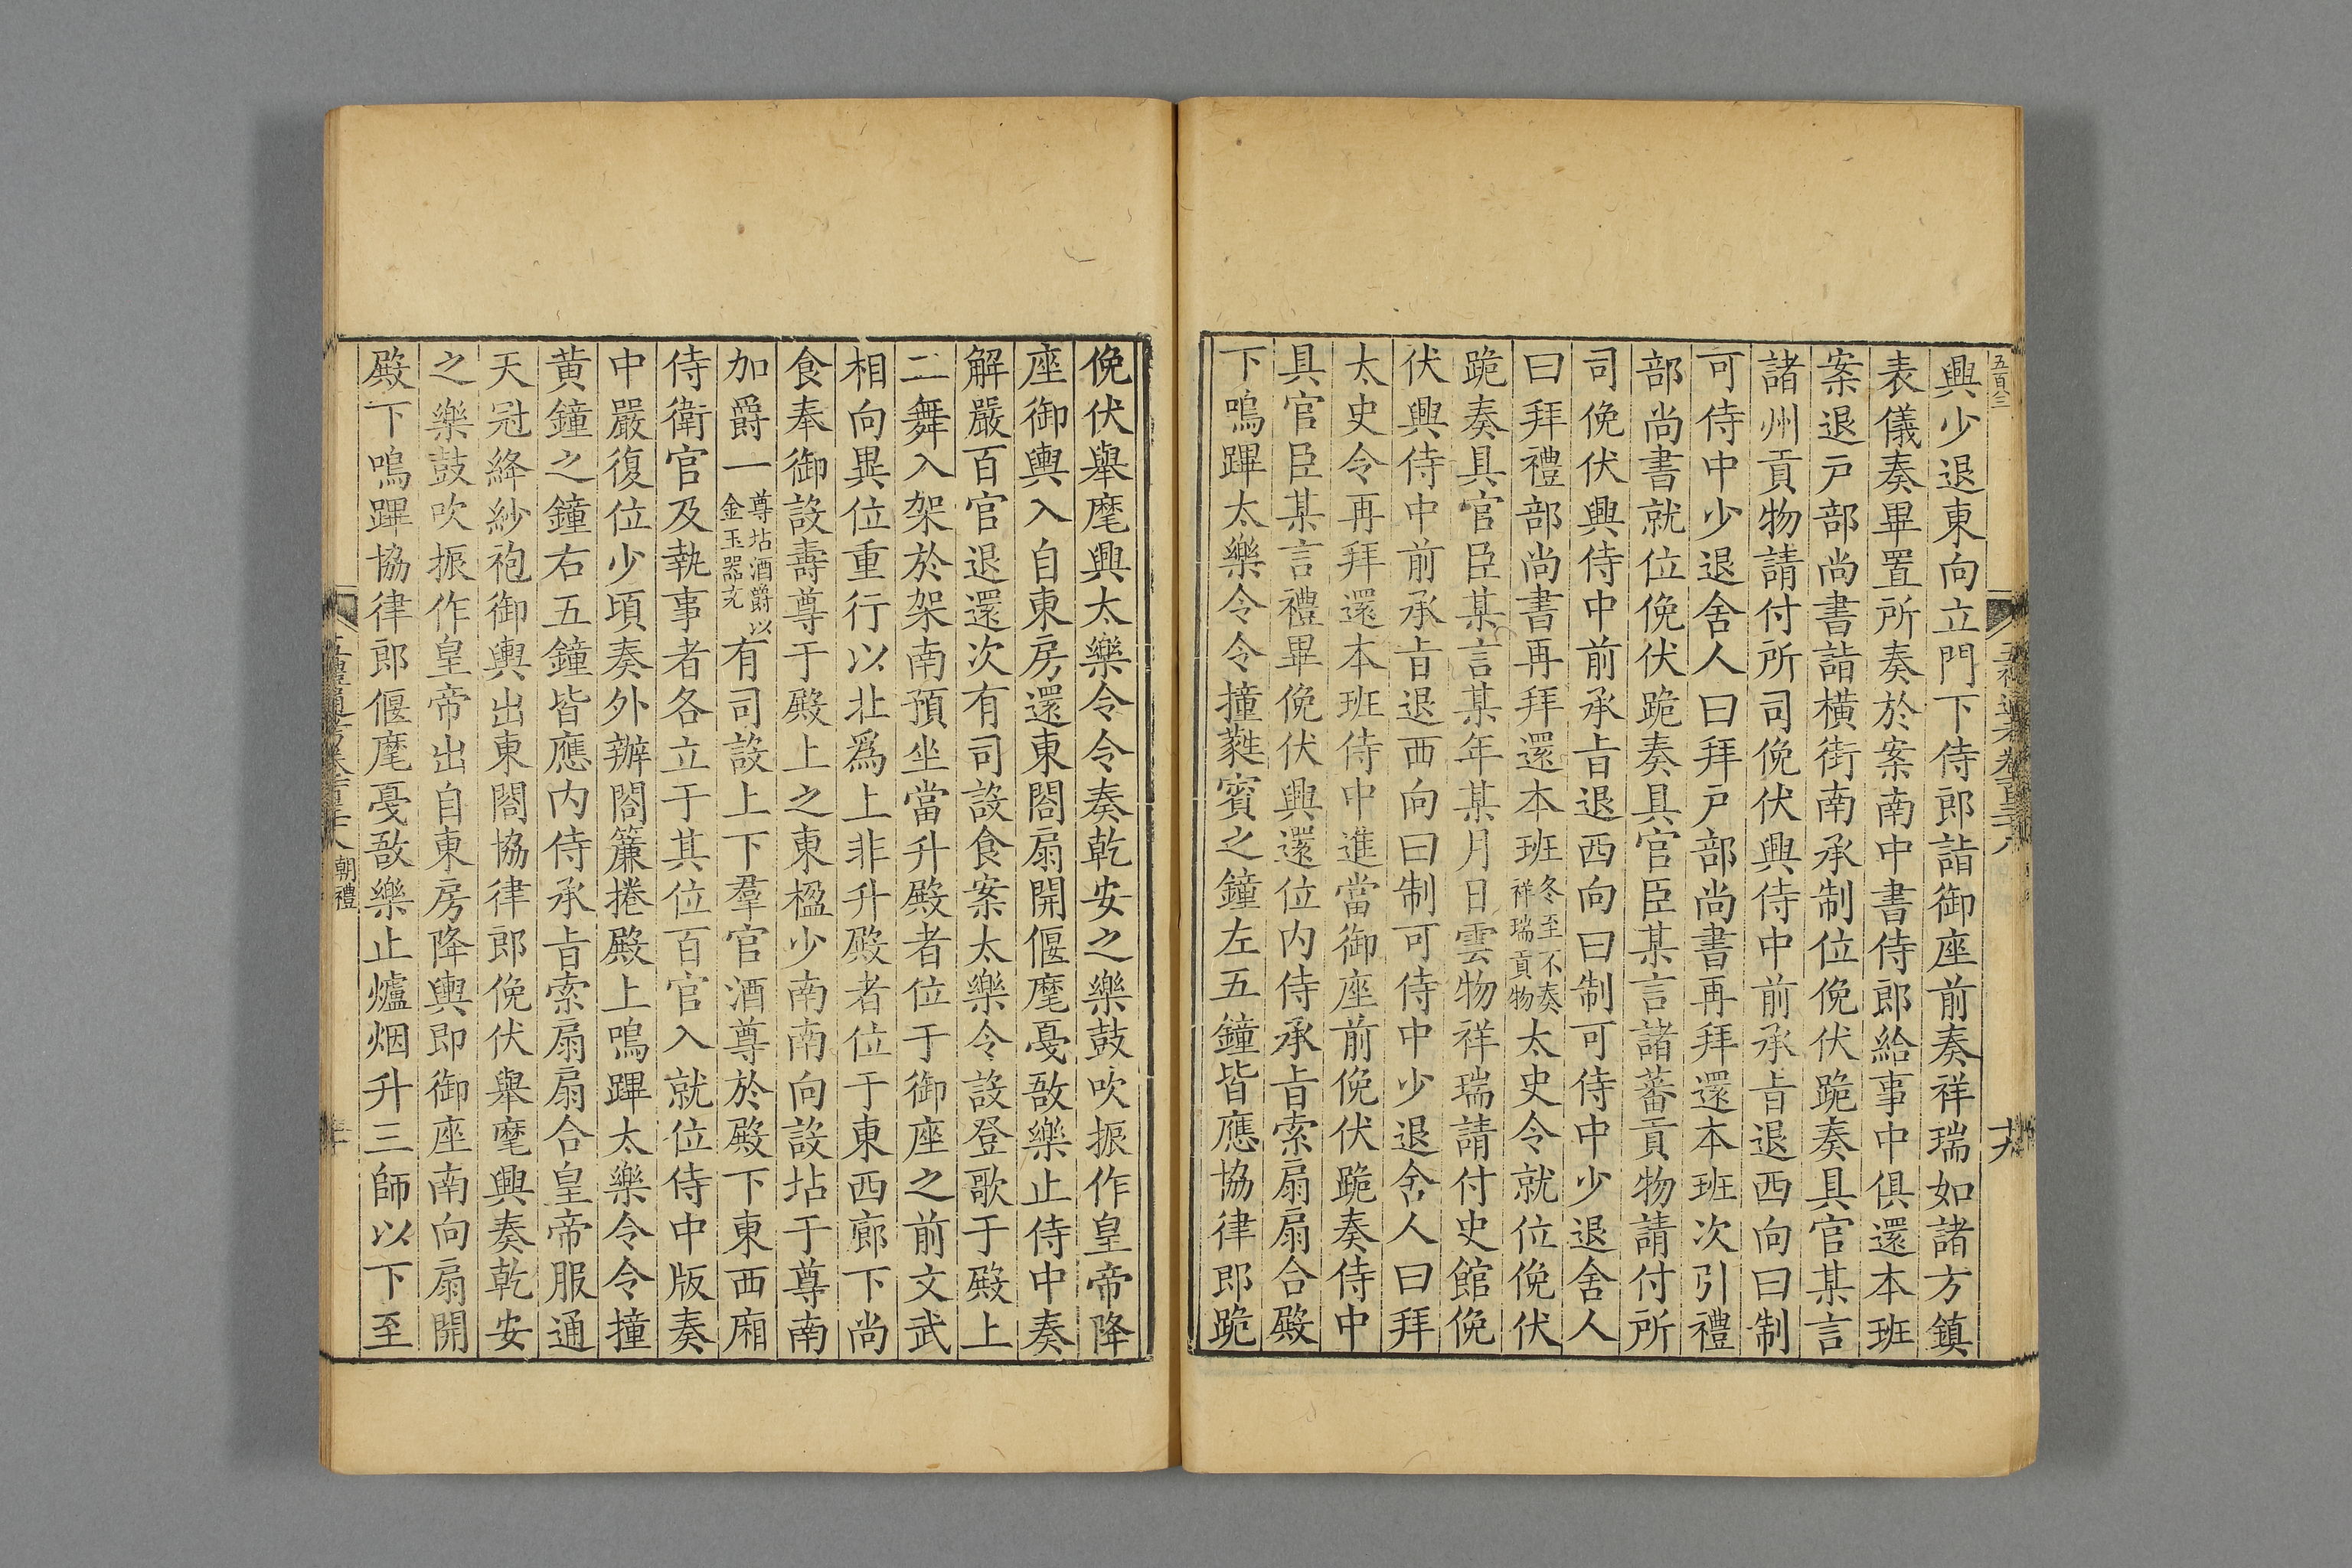 五百八三
興少退東向立門下侍郎詣御座前奏祥瑞如諸方鎮
表儀奏畢置所奏於案南中書侍郎給事中俱還本班
案退戸部尚書詣橫街南承制位俛伏跪奏具官某言
諸州貢物請付所司俛伏興侍中前承㫖退西向曰制
可侍中少退舍人曰拜戸部尚書再拜還本班次引禮
部尚書就位俛伏跪奏具官臣某言諸蕃貢物請付所
司俛伏興侍中前承㫖退西向曰制可侍中少退舍人
曰拜禮部尚書再拜還本班冬至不奏祥瑞貢物太史令就位俛伏
跪奏具官臣某言某年某月日雲物祥瑞請付史館俛
伏興侍中前承㫖退西向曰制可侍中少退舍人曰拜
太史令再拜還本班侍中進當御座前俛伏跪奏侍中
具官臣某言禮畢俛伏興還位内侍承㫖索扇扇合殿
下鳴蹕太樂令令撞蕤賓之鐘左五鐘皆應協律郎跪
俛伏舉麾興太樂令令奏乾安之樂鼓吹振作皇帝降
座御輿入自東房還東閤扇開偃麾戛敔樂止侍中奏
解嚴百官退還次有司設食案太樂令設登歌于殿上
二舞入架於架南預坐當升殿者位于御座之前文武
相向異位重行以北爲上非升殿者位于東西廊下尚
食奉御設壽尊于殿上之東楹少南南向設坫于尊南
加爵一尊坫酒爵以金玉器充有司設上下羣官酒尊於殿下東西廂
侍衛官及執事者各立于其位百官入就位侍中版奏
中嚴復位少頃奏外辦閤簾捲殿上鳴蹕太樂令令撞
黄鐘之鐘右五鐘皆應内侍承㫖索扇扇合皇帝服通
天冠絳紗袍御輿出東閤協律郎俛伏舉麾興奏乾安
之樂鼓吹振作皇帝出自東房降輿即御座南向扇開
殿下鳴蹕協律郎偃麾戛敔樂止爐烟升三師以下至
朝禮